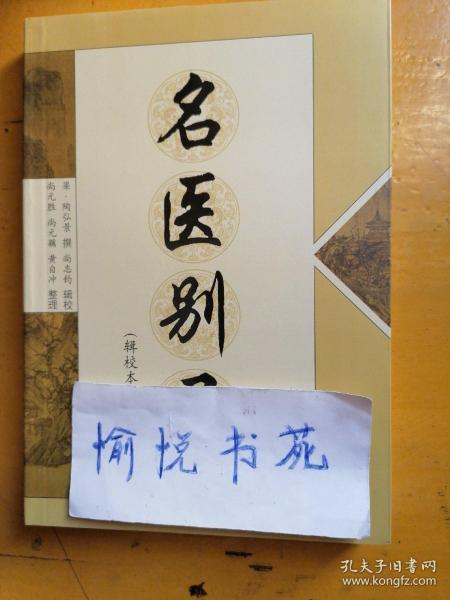 名医别
(辑校本
梁·陶弘景 撰 尚志钧 辑校
尚元胜 尚元藕 黄自冲 整理
愉悦书苑
孔夫子旧书网
www.kongfz.com